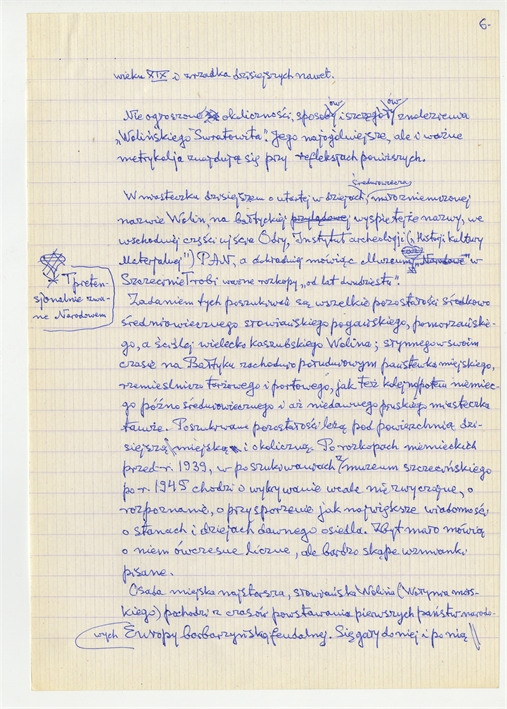 6.
wieku XIX i z rzadka dzisiejszych nawet.
Nie ogroszone okoliczności, sposobów i szczegółów znalezienia
„Wolińskiego Światowita". Jego najogólniejsze, ale i ważne
metrykalja znajdują się przy refleksjach poniższych.
W miasteczku dzisiejszem o utartej w dziejach, średniowiecznej
nazwie Wolin, na bałtyckiej wyspie tejże nazwy, we
wschodniej części ujścia Odry, Instytut archeologji („Historji Kultury
Materjalnej") PAN, a dokładniej mówiąc Muzeum „Narodowe" w
Szczecinie robi ważne rozkopy „od lat dwudziestu".
T preten-
sjonalnie zwa-
ne Narodowem
Zadaniem tych poszukiwań są wszelkie pozostałości środkowo
średniowiecznego słowiańskiego pogańskiego, pomorzańskie-
go, a ściślej wielecko kaszubskiego Wolina; słynnego w swoim
czasie na Bałtyku zachodnio południowym państewka miejskiego,
rzemieślniczo targowego i portowego, jak też kolejno potem niemiec-
go późno średniowiecznego i aż niedawnego pruskiego miasteczka
tamże. Poszukiwane pozostałości leżą pod powierzchnią dzi-
siejszą miejską i okoliczną. Po rozkopach niemieckich
przed r. 1939, w poszukiwaniach muzeum szczecińskiego
po r. 1945 chodzi o wykrywanie wcale niezwyczajne, o
rozpoznanie, o przysporzenie jak największe wiadomości
o stanach i dziejach dawnego osiedla. Zbyt mało mówią
o niem ówczesne liczne, ale bardzo skąpe wzmianki
pisane.
Osada miejska najstarsza, słowiańska Wolina
kiego) pochodzi z czasów powstawania pierwszych państw narodo-
wych Europy barbarzyńsko feudalnej. Sięgały do niej i po nią